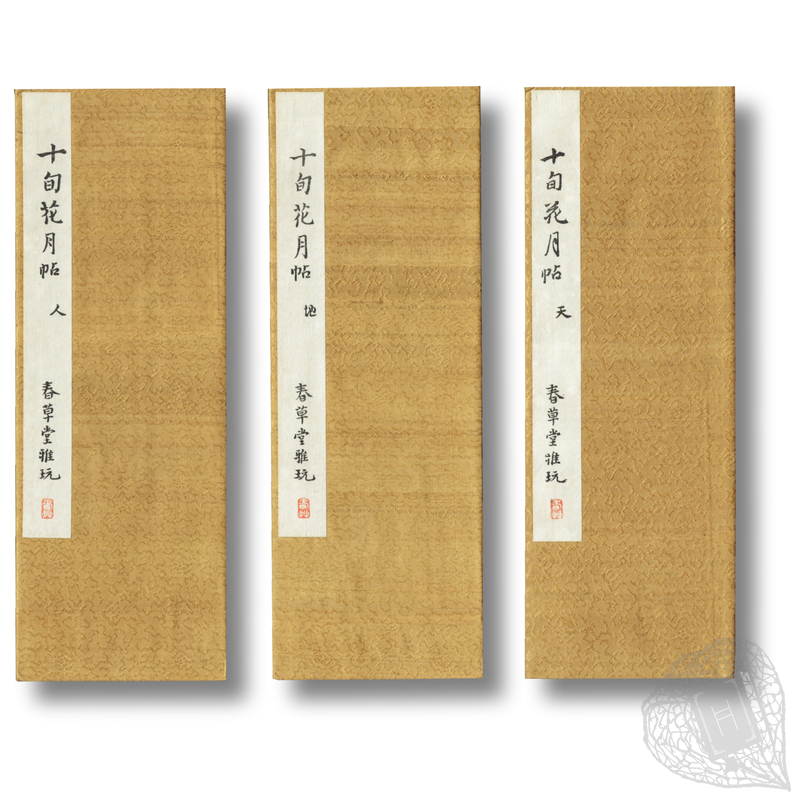 十旬花月帖 天
春草堂雅玩
十旬花月帖 地
春草堂雅玩
十旬花月帖 人
春草堂雅玩
H